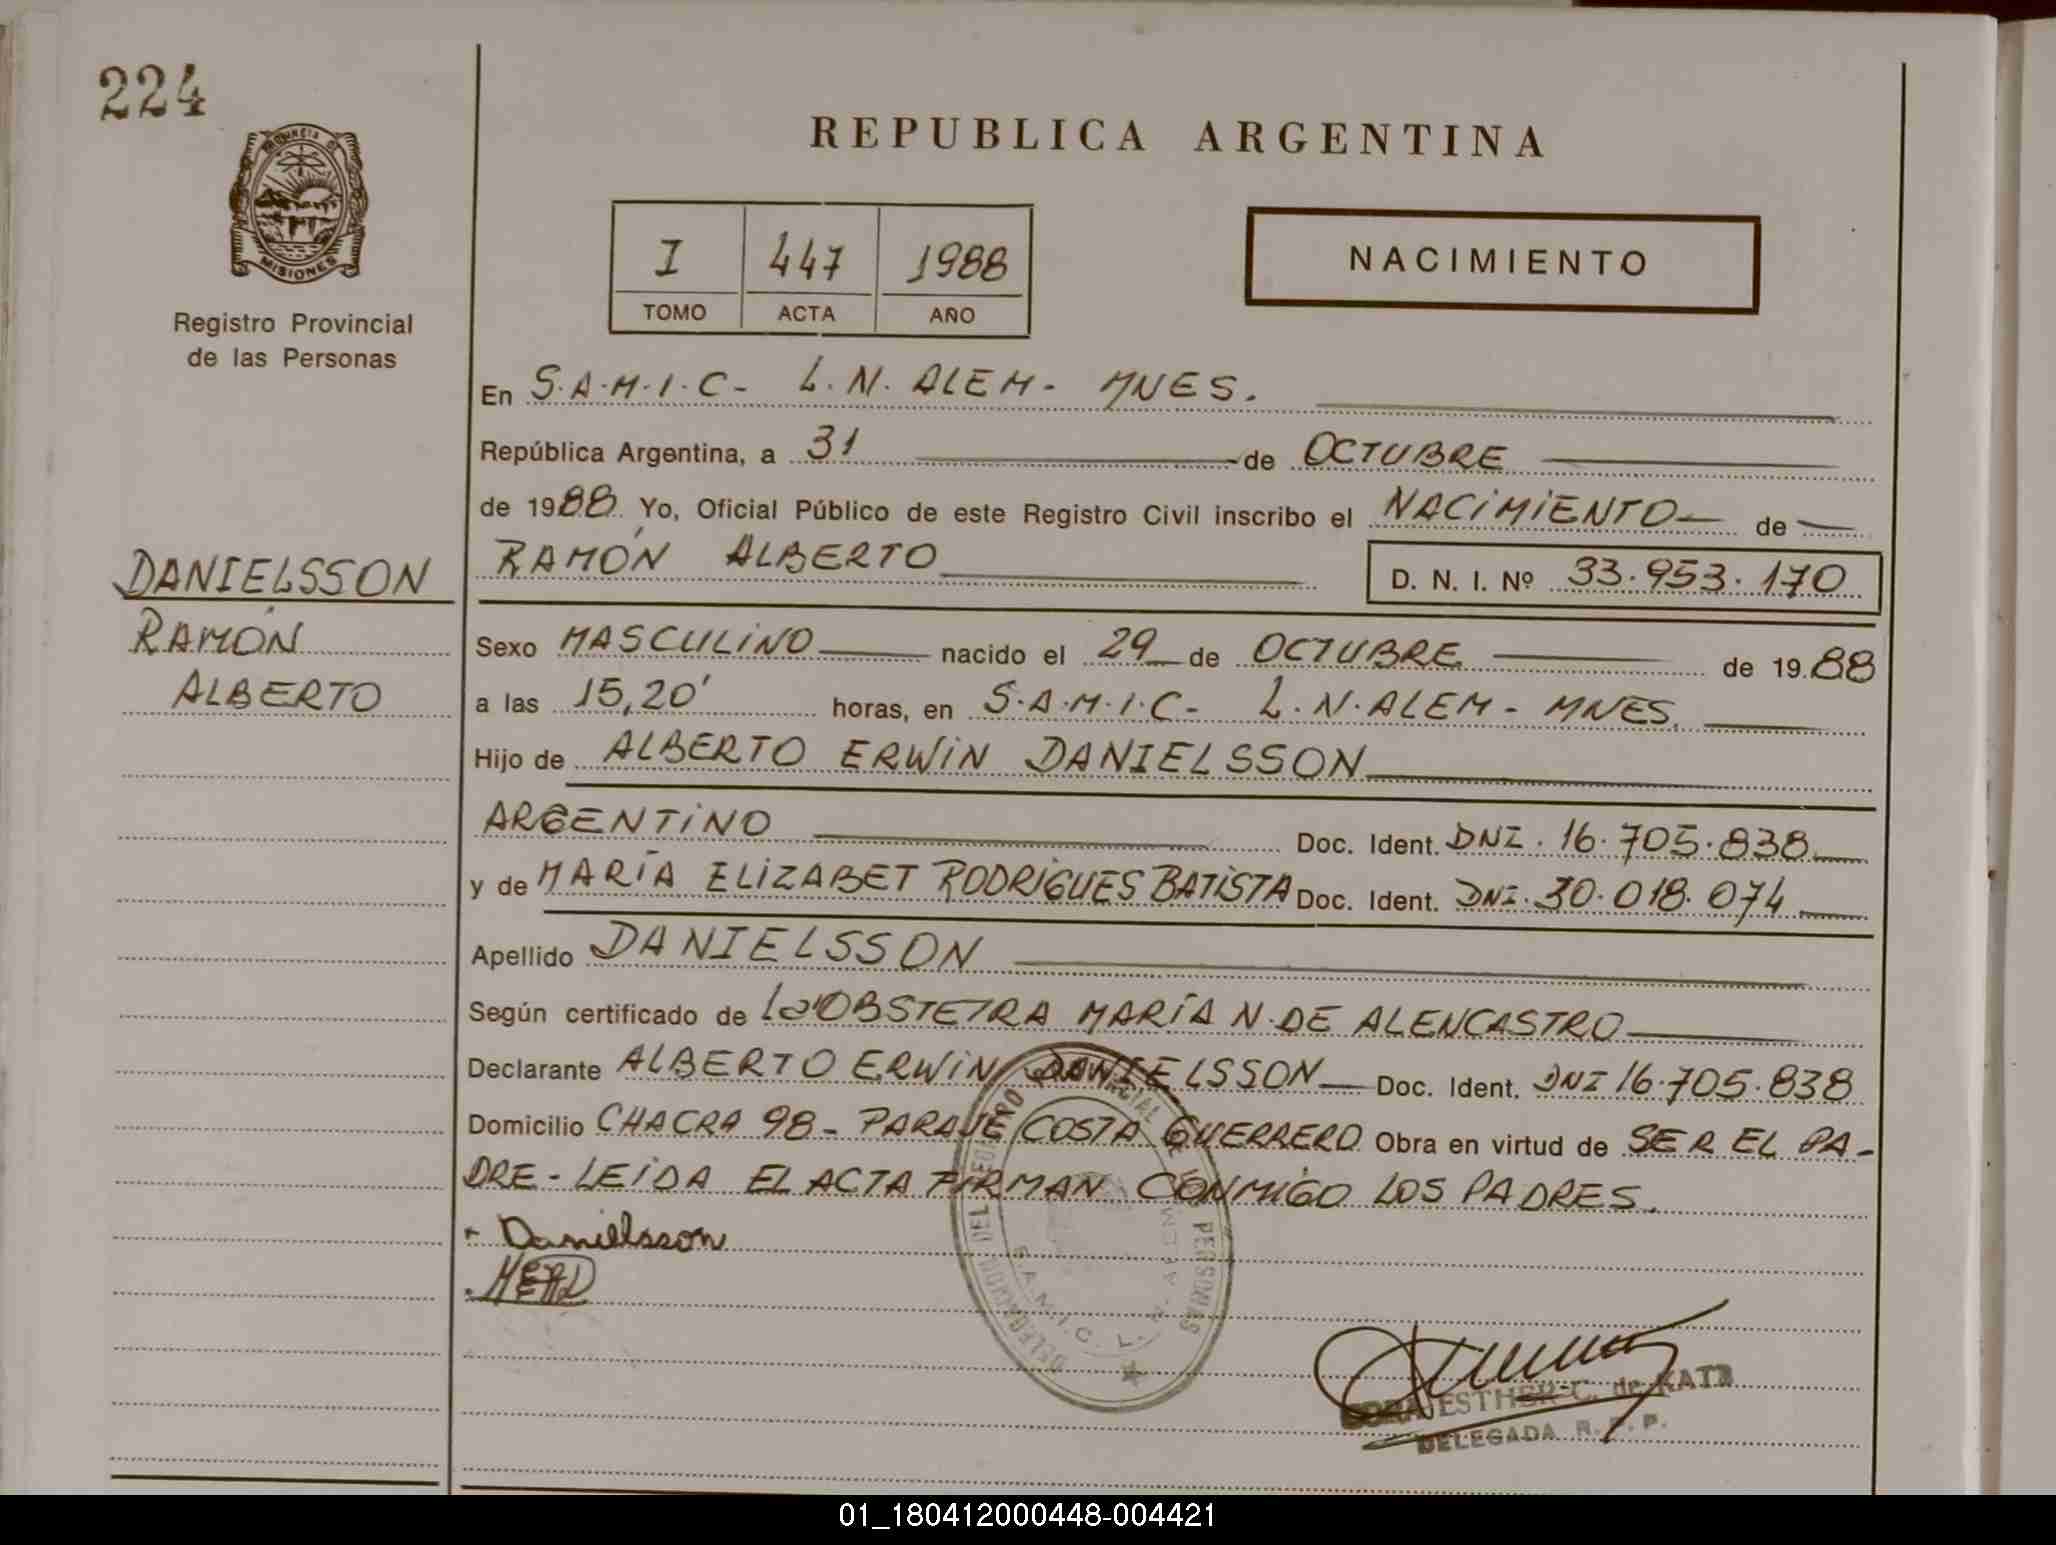 224
REPUBLICA ARGENTINA
PROVINCIA DE
MISIONES
Registro Provincial
de las Personas
I 447 1988
TOMO ACTA AÑO
NACIMIENTO
En S.A.M.I.C- L.N. ALEM- MNES.
República Argentina, a 31 de OCTUBRE
de 1988. Yo, Oficial Público de este Registro Civil inscribo el NACIMIENTO de
RAMÓN ALBERTO D. N. I. Nº 33.953.170
DANIELSSON
RAMÓN
ALBERTO
Sexo MASCULINO nacido el 29 de OCTUBRE de 19.88
a las 15,20' horas, en S.A.M.I.C- L.N.ALEM- MNES.
Hijo de ALBERTO ERWIN DANIELSSON
ARGENTINO Doc. Ident. DNI. 16.705.838
y de MARÍA ELIZABET RODRIGUES BATISTA Doc. Ident. DNI. 30.018.074
Apellido DANIELSSON
Según certificado de La OBSTETRA MARÍA N. DE ALENCASTRO
Declarante ALBERTO ERWIN DANIELSSON Doc. Ident. DNI 16.705.838
Domicilio CHACRA 98- PARAJE COSTA GUERRERO Obra en virtud de SER EL PA-
DRE- LEIDA EL ACTA FIRMAN CONMIGO LOS PADRES.
Danielsson
MERD
DE LAS PERSONAS
S.A.M.I.C. L.N.
ESTHER C. de KATZ
DELEGADA R. P. P.
01_180412000448-004421